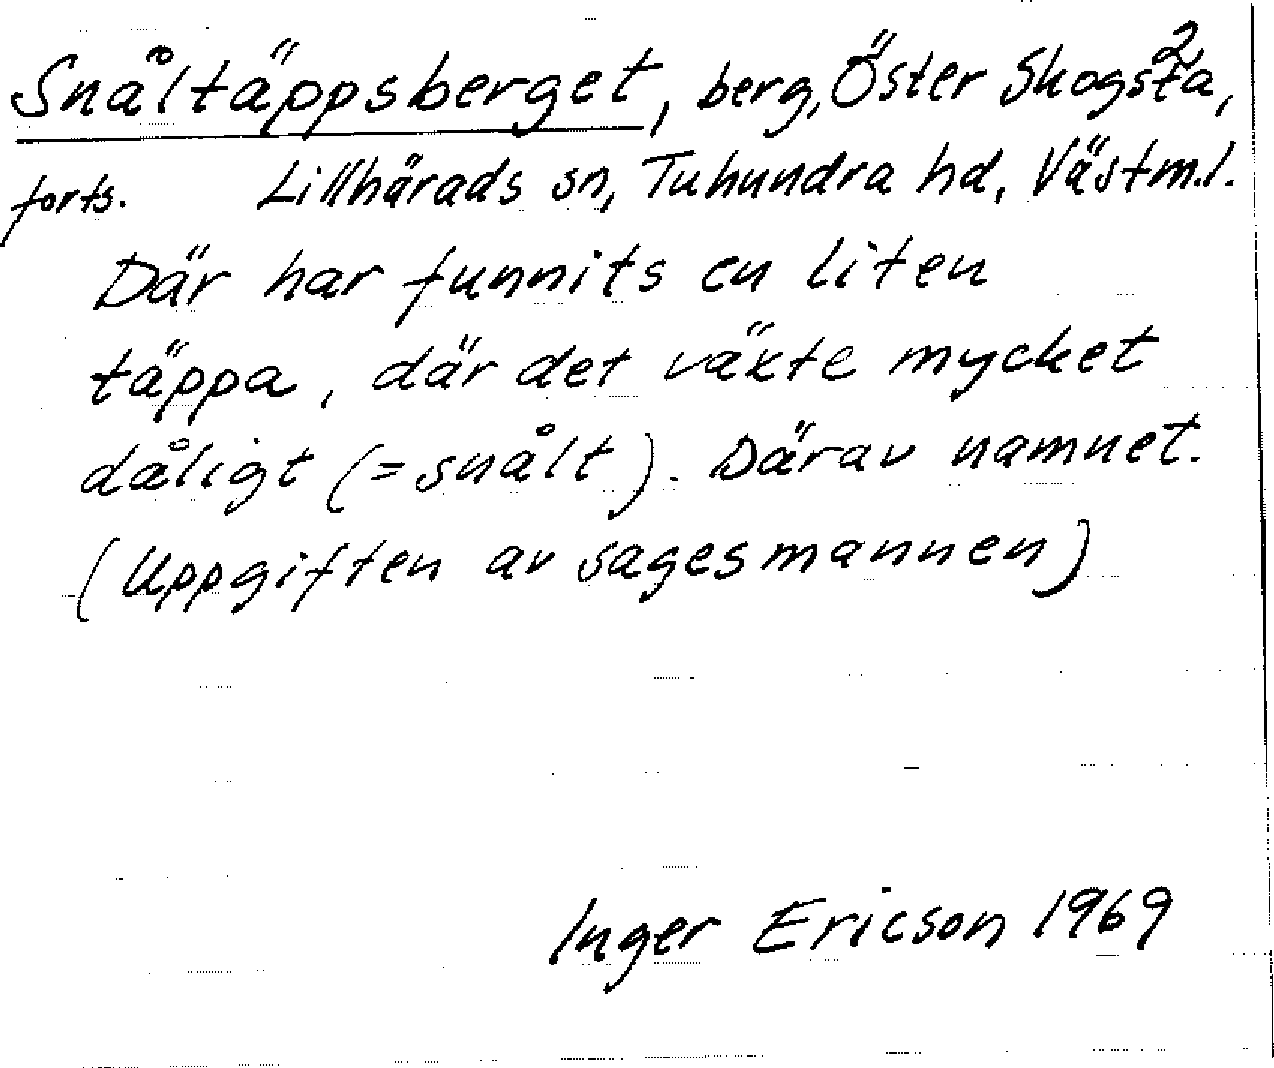 2
Snåltäppsberget, berg, Öster Skogsta,
forts. Lillhärads sn, Tuhundra hd, Västm.l.
Där har funnits en liten
täppa, där det växte mycket
dåligt (= snålt). Därav namnet.
(Uppgiften av sagesmannen)
Inger Ericson 1969